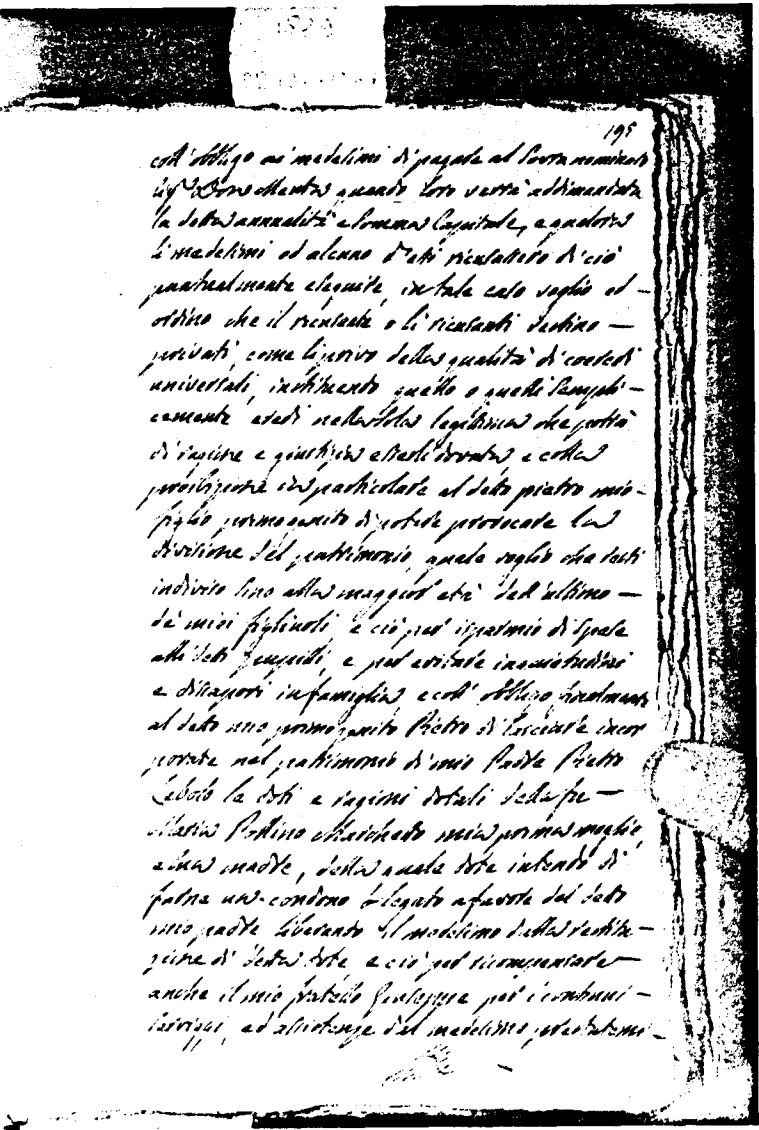 195
coll'obbligo ai medesimi di pagare al Sovra nominato
Sig.r Don Manta quando loro verrà addimandata
la detta annualità e somma Capitale, e qualora
li medesimi od alcuno d'essi ricusassero di ciò
puntualmente eseguire, in tale caso voglio ed
ordino che il ricusante o li ricusanti restino
privati, come li privo della qualità di coeredi
universali, instituendo quello o quelli sempli-
cemente eredi nella sola legittima che potrà
di ragione e giustizia essarli dovuta e colla
proibizione in particolare al detto pietro mio
figlio primogenito di potere provocare la
divisione del patrimonio, quale voglio che resti
indiviso sino alla maggior età dell'ultimo
de miei figliuoli, e ciò per isparmio di spese
alli detti pupilli, e per evitare inquietudini
e dissapori in famiglia e coll'obbligo finalmente
al detto mio primogenito Pietro di lasciare incor
porate nel patrimonio di mio Padre Pietro
la doti e ragioni dotali della fu
Maria mia prima moglie,
e sua madre, della quale dote intendo di
farne un condono e legato a favore del detto
mio padre liberando il medesimo dalla restitu-
zione di detta dote e ciò per ricompensare
anche il mio fratello Giuseppe per i continui
servizi, ed assistenze dal medesimo prestatemi